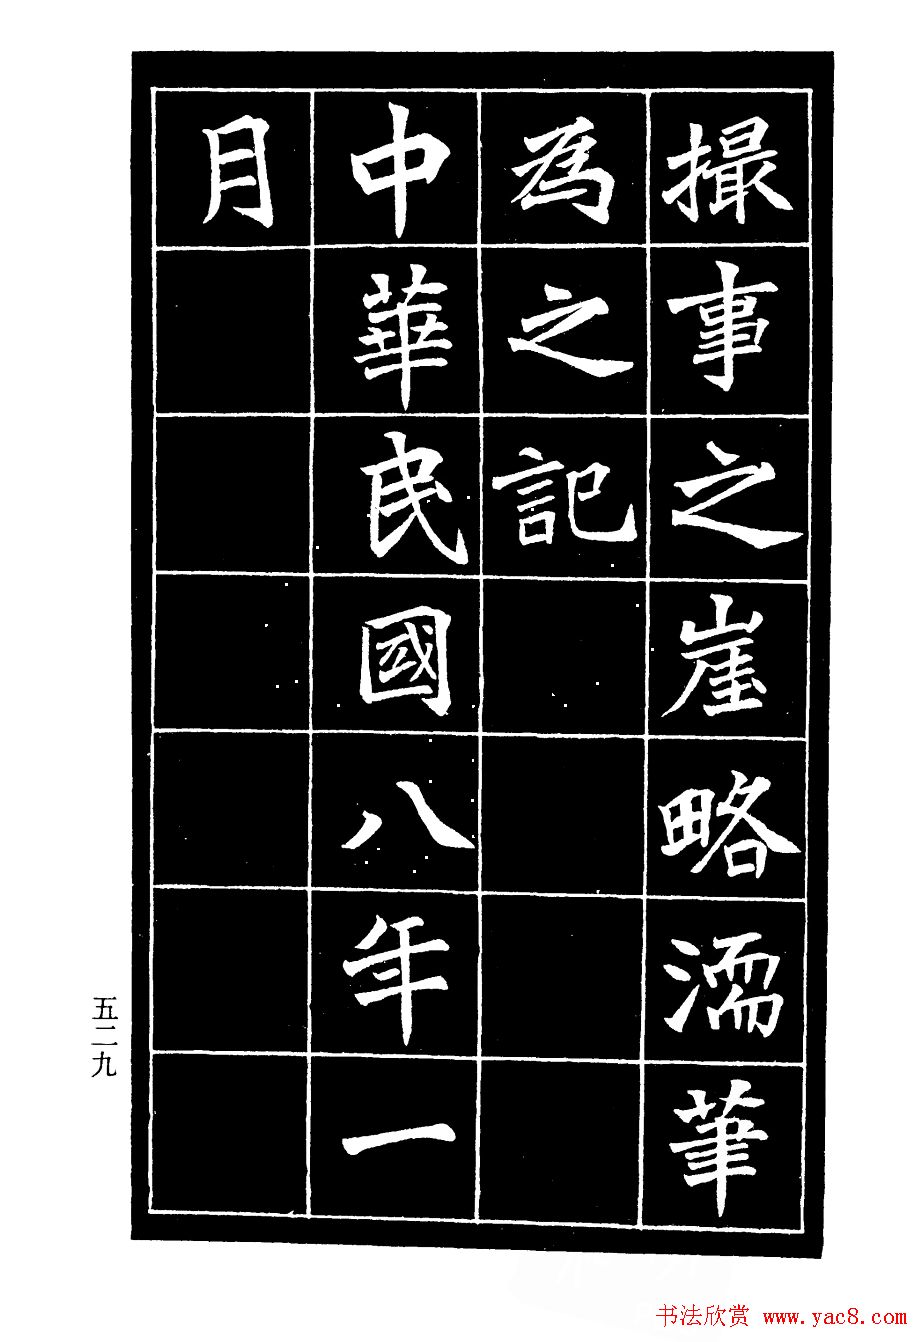 撮事之崖略濡筆
為之記
中華民國八年一
月
五二九
书法欣赏 www.yac8.com